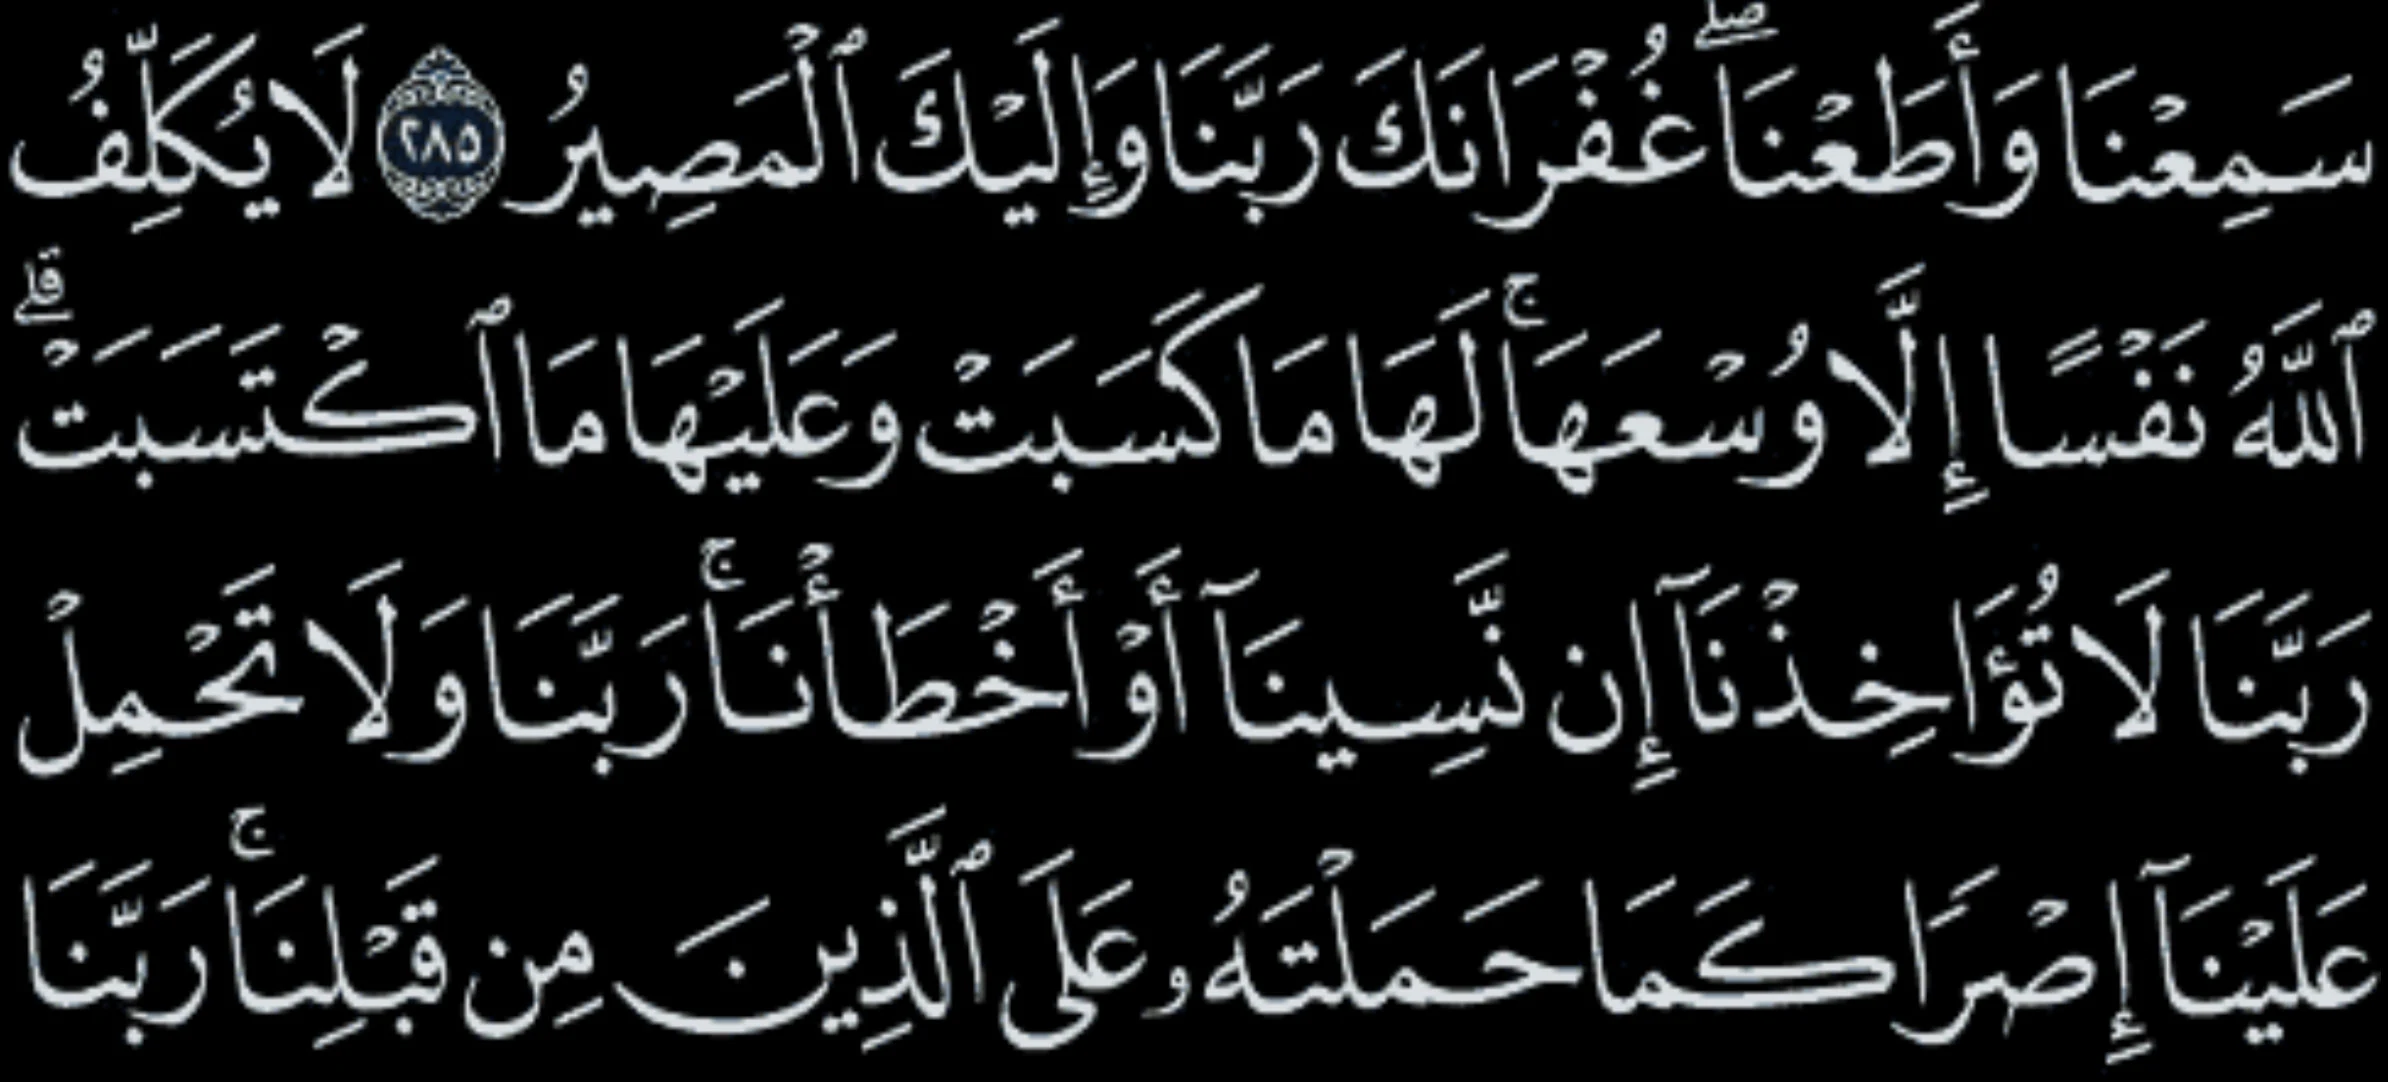 سَمِعْنَا وَأَطَعْنَاۖ غُفْرَانَكَ رَبَّنَا وَإِلَيْكَ ٱلْمَصِيرُ ٢٨٥ لَا يُكَلِّفُ
ٱللَّهُ نَفْسًا إِلَّا وُسْعَهَاۚ لَهَا مَا كَسَبَتْ وَعَلَيْهَا مَا ٱكْتَسَبَتْۗ
رَبَّنَا لَا تُؤَاخِذْنَآ إِن نَّسِينَآ أَوْ أَخْطَأْنَاۚ رَبَّنَا وَلَا تَحْمِلْ
عَلَيْنَآ إِصْرَا كَمَا حَمَلْتَهُۥ عَلَى ٱلَّذِينَ مِن قَبْلِنَاۚ رَبَّنَا